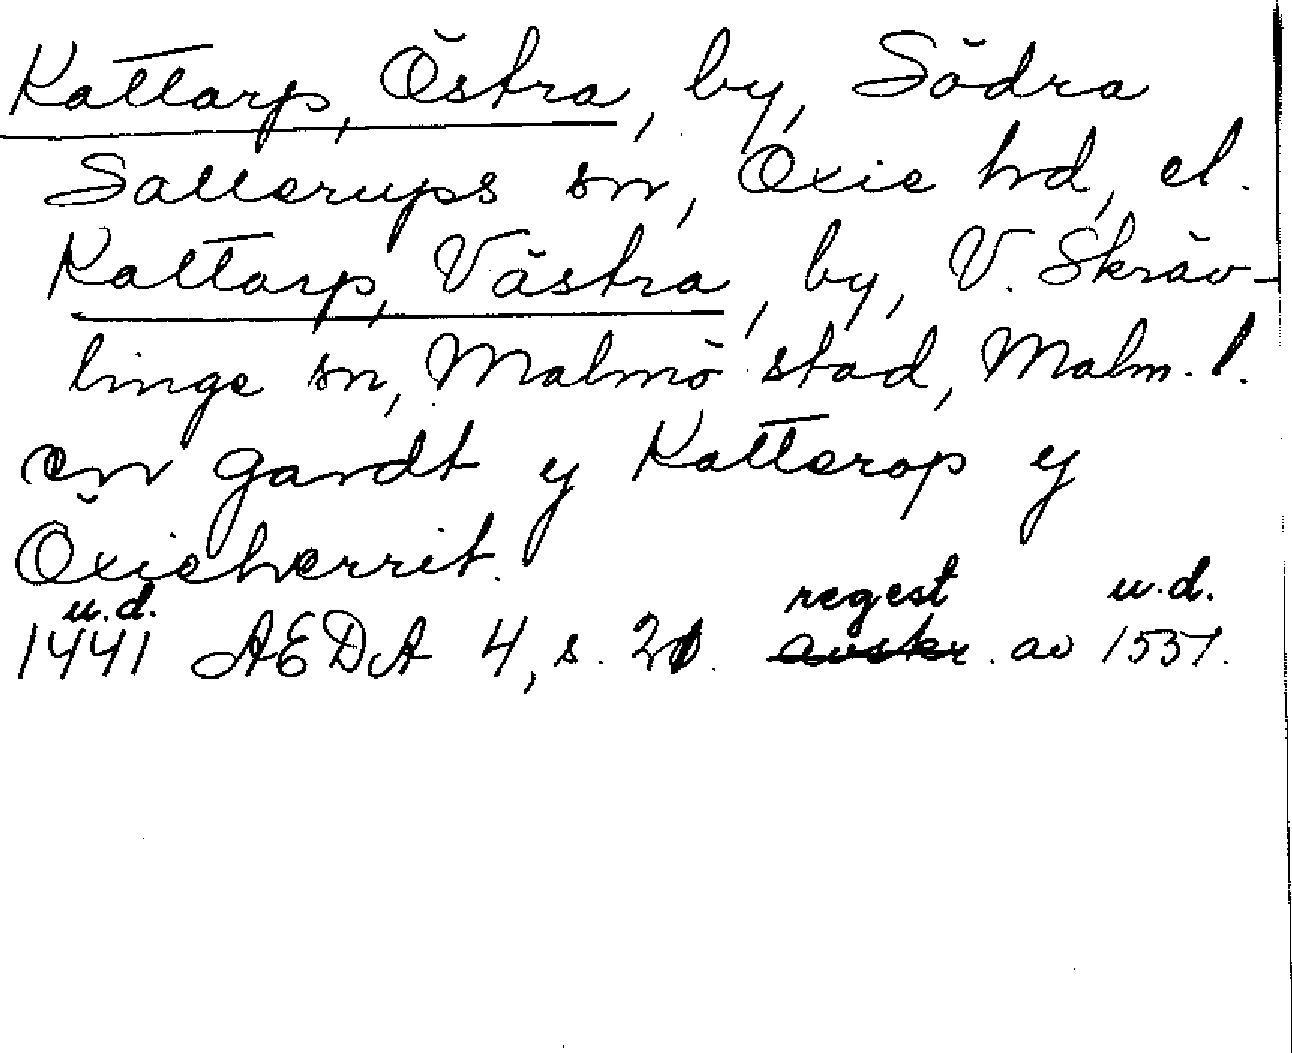 Kattarp, Östra, by, Södra
Sallerups sn, Oxie hd, el.
Kattarp, Västra, by, V. Skräv-
linge sn, Malmö stad, Malm. l.
en gardt y Katterop y
Öxieherrit.
u.d. regest u.d.
1441 AEDA 4, s. 21. avskr. av 1537.